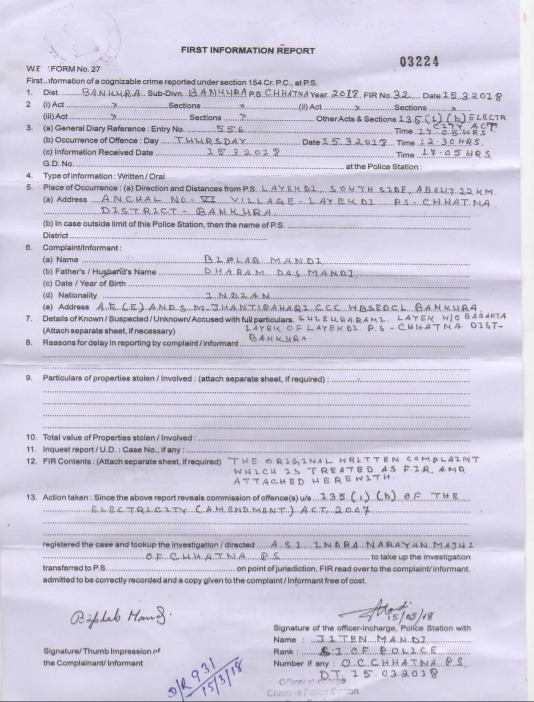 FIRST INFORMATION REPORT
03224
W.E FORM No. 27
First..nformation of a cognizable crime reported under section 154 Cr. P.C., at P.S.
1. Dist. BANKURA Sub-Divn. BANKURA P.S. CHHATNA Year. 2018 FIR No. 32 Date 15.3.2018
2 (i) Act x Sections x (ii) Act x Sections x
(iii) Act x Sections x Other Acts & Sections 135(1)(b) ELECTR
CITY ACT
3. (a) General Diary Reference : Entry No. 556 Time 17.05 HRS.
(b) Occurrence of Offence : Day THURSDAY Date 15.3.2018 Time 12-30 HRS.
(c) Information Received Date 15.3.2018 Time 17-05 HRS
G.D. No. at the Police Station :
4. Type of information : Written / Oral
5. Place of Occurrence : (a) Direction and Distances from P.S. LAYEKDI, SOUTH SIDE, ABOUT 22 KM
(a) Address ANCHAL NO- VI VILLAGE - LAYEKDI PS - CHHATNA
DISTRICT - BANKURA
(b) In case outside limit of this Police Station, then the name of P.S.
District
6. Complaint/Informant :
(a) Name BIPLAB MANDI
(b) Father's / Husband's Name DHARAM DAS MANDI
(c) Date / Year of Birth
(d) Nationality INDIAN
(e) Address A.E (E) AND S.M. JHANTIPAHARI CCC WBSEDCL BANKURA
7. Details of Known / Suspected / Unknown / Accused with full particulars. LAYEK W/O BASANTA
(Attach separate sheet, if necessary) LAYEK OF LAYEKDI P.S - CHHATNA DIST-
8. Reasons for delay in reporting by complaint / informant BANKURA
9. Particulars of properties stolen / Involved : (attach separate sheet, if required) :
10. Total value of Properties stolen / Involved :
11. Inquest report / U.D. : Case No., if any :
12. FIR Contents : (Attach separate sheet, if required) THE ORIGINAL WRITTEN COMPLAINT
WHICH IS TREATED AS F.I.R. AND
ATTACHED HEREWITH.
13. Action taken : Since the above report reveals commission of offence(s) u/s 135(1)(b) OF THE
ELECTRICITY (AMENDMENT) ACT, 2007
registered the case and tookup the investigation / directed A.S.I INDRA NARAYAN MAJHI
OF CHHATNA PS to take up the investigation
transferred to P.S. on point of jurisdiction. FIR read over to the complaint / informant.
admitted to be correctly recorded and a copy given to the complaint / Informant free of cost.
Biplab Mandi.
15/03/18
Signature of the officer-incharge, Police Station with
Name : JITEN MANDI
Signature/ Thumb Impression of
Rank : SI OF POLICE
the Complainant/ Informant
Number if any : O.C CHHATNA P.S.
DT. 15.03.2018
D/R 931
15/3/18
Officer in-charge
Chhatna Police Station